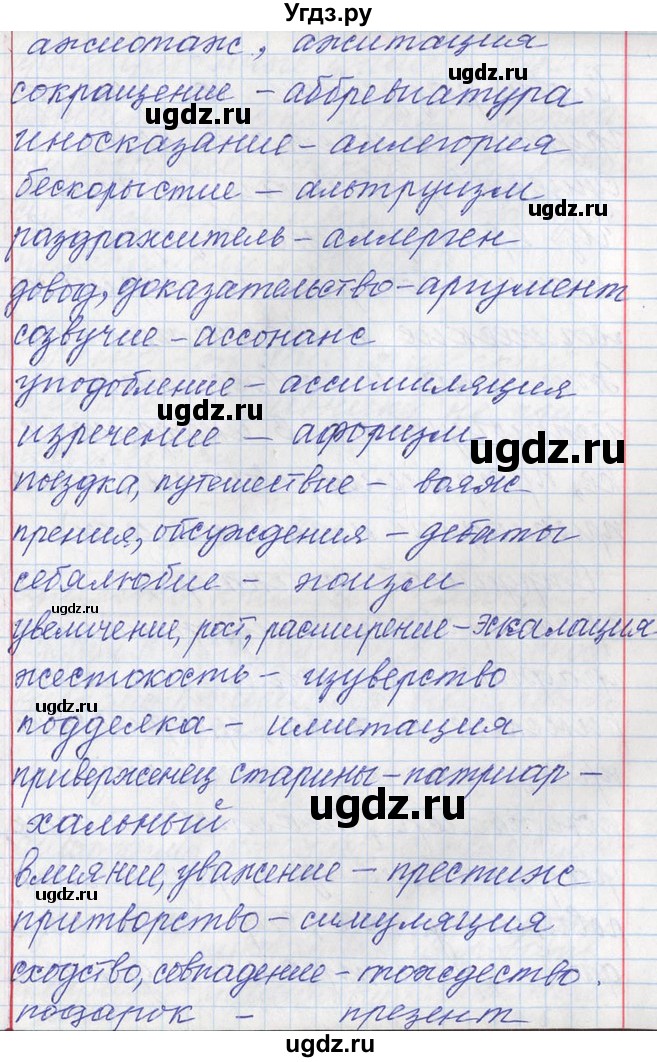 Угдз.ру
ажиотаж, ажитация
сокращение – аббревиатура
ugdz.ru
ugdz.ru
иносказание – аллегория
бескорыстие – альтруизм
ugdz.ru
раздражитель – аллерген
довод, доказательство – аргумент
созвучие – ассонанс
уподобление – ассимиляция
ugdz.ru
изречение – афоризм
ugdz.ru
поездка, путешествие – вояж
прения, обсуждения – дебаты
себялюбие – эгоизм
ugdz.ru
увеличение, рост, расширение – эскалация
жестокость – изуверство
ugdz.ru
подделка – имитация
приверженец старины – патриар-
ugdz.ru
хальный
влияние, уважение – престиж
ugdz.ru
притворство – симуляция
сходство, совпадение – тождество.
подарок – презент
ugdz.ru